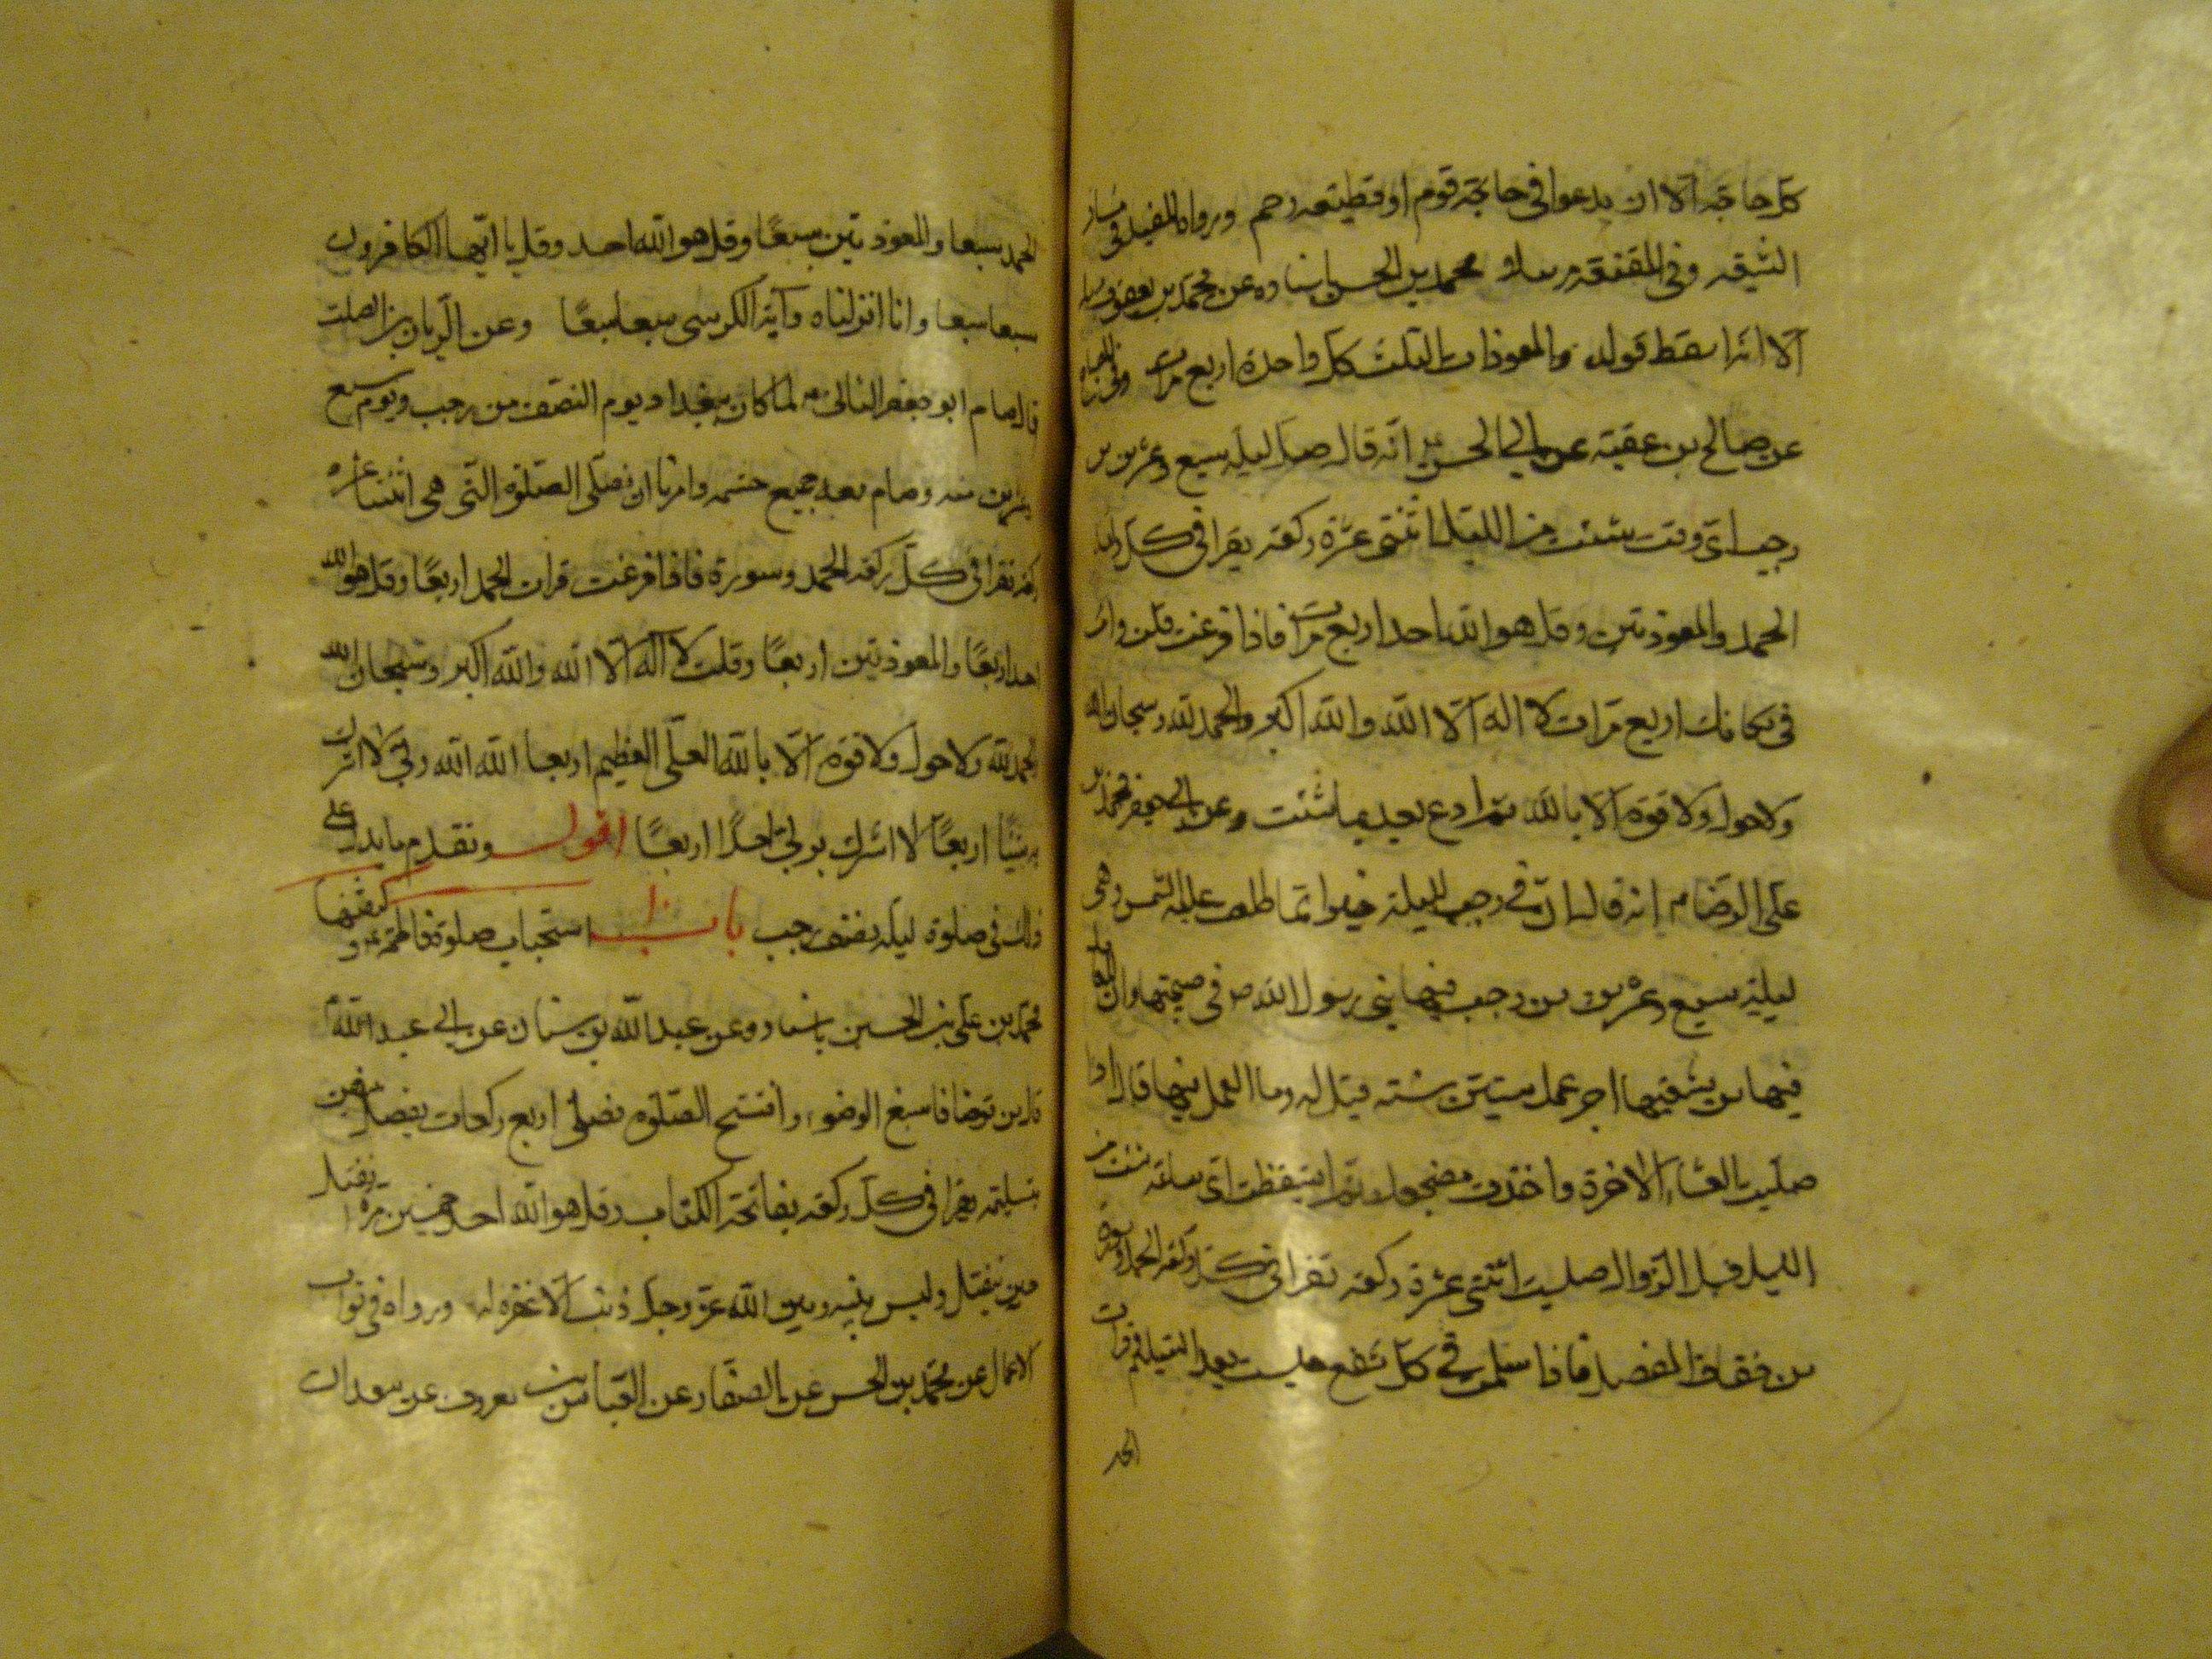 كل حاجة الا ان يدعوا في حاجة قوم او قطيعة رحم ورواه المفيد في مسار
الشيعة وفي المقنعة مرسلا و محمد بن الحسن باسناده عن محمد بن يعقوب مثله
الا انه اسقط قوله والمعوذات الثلث كل واحدة اربع مرات وفي المصباح
عن صالح بن عقبة عن ابي الحسن انه قال صل ليلة سبع وعشرين من
رجب اي وقت شئت من الليل اثنتي عشرة ركعة يقرا في كل ركعة
الحمد والمعوذتين وقل هو الله احد اربع مرات فاذا فرغت قلت وانت
في مكانك اربع مرات لا اله الا الله والله اكبر والحمد لله وسبحان الله
ولا حول ولا قوة الا بالله ثم ادع بعد بما شئت وعن ابي جعفر محمد بن
على الرضا م انه قال ان في رجب لليلة خير مما طلعت عليه الشمس وهى
ليلة سبع وعشرين من رجب فيها نبى رسول الله ص في صبيحتها وان للعامل
فيها من شيعتها اجر عمل ستين سنة قيل له وما العمل فيها قال اذا
صليت العشاء الاخرة واخذت مضجعك ثم استيقظت اي ساعة شئت من
الليل قبل الزوال صليت اثنتي عشرة ركعة تقرا في كل ركعة الحمد وسورة
من خفاف المفصل فاذا سلمت في كل شفع جلست بعد التسليم وقرات
الحمد
الحمد سبعا والمعوذتين سبعًا وقل هو الله احد وقل يا ايها الكافرون
سبعا سبعا وانا انزلناه وآية الكرسى سبعا سبعًا وعن الريان بن الصلت
قال صام ابو جعفر الثانى م لما كان ببغداد يوم النصف من رجب ويوم سبع
عشرين منه وصام معه جميع حشمه وامرنا ان نصلى الصلوة التى هى اثنتا عشرة
ركعة نقرا في كل ركعة الحمد وسورة فاذا فرغت قرات الحمد اربعًا وقل هو الله
احد اربعًا والمعوذتين اربعًا وقلت لا اله الا الله والله اكبر وسبحان الله
والحمد لله ولا حول ولا قوة الا بالله العلى العظيم اربعا الله الله ربى لا اشرك
به شيئًا اربعًا لا اشرك بربى احدًا اربعًا اقول وتقدم ما يدل على
ذلك في صلوة ليلة نصف رجب باب ١٠ استحباب صلوة فاطمة ع و كيفيتها
محمد بن على بن الحسين باسناده عن عبد الله بن سنان عن ابى عبد الله
قال من توضا فاسبغ الوضوء وافتتح الصلوة فصلى اربع ركعات يفصل بينهن
بتسليمة يقرا في كل ركعة بفاتحة الكتاب وقل هو الله احد خمسين مرة انفتل
حين ينفتل وليس بينه وبين الله عز وجل ذنب الا غفره له ورواه في ثواب
الاعمال عن محمد بن الحسن عن الصفار عن العباس بن معروف عن سعدان